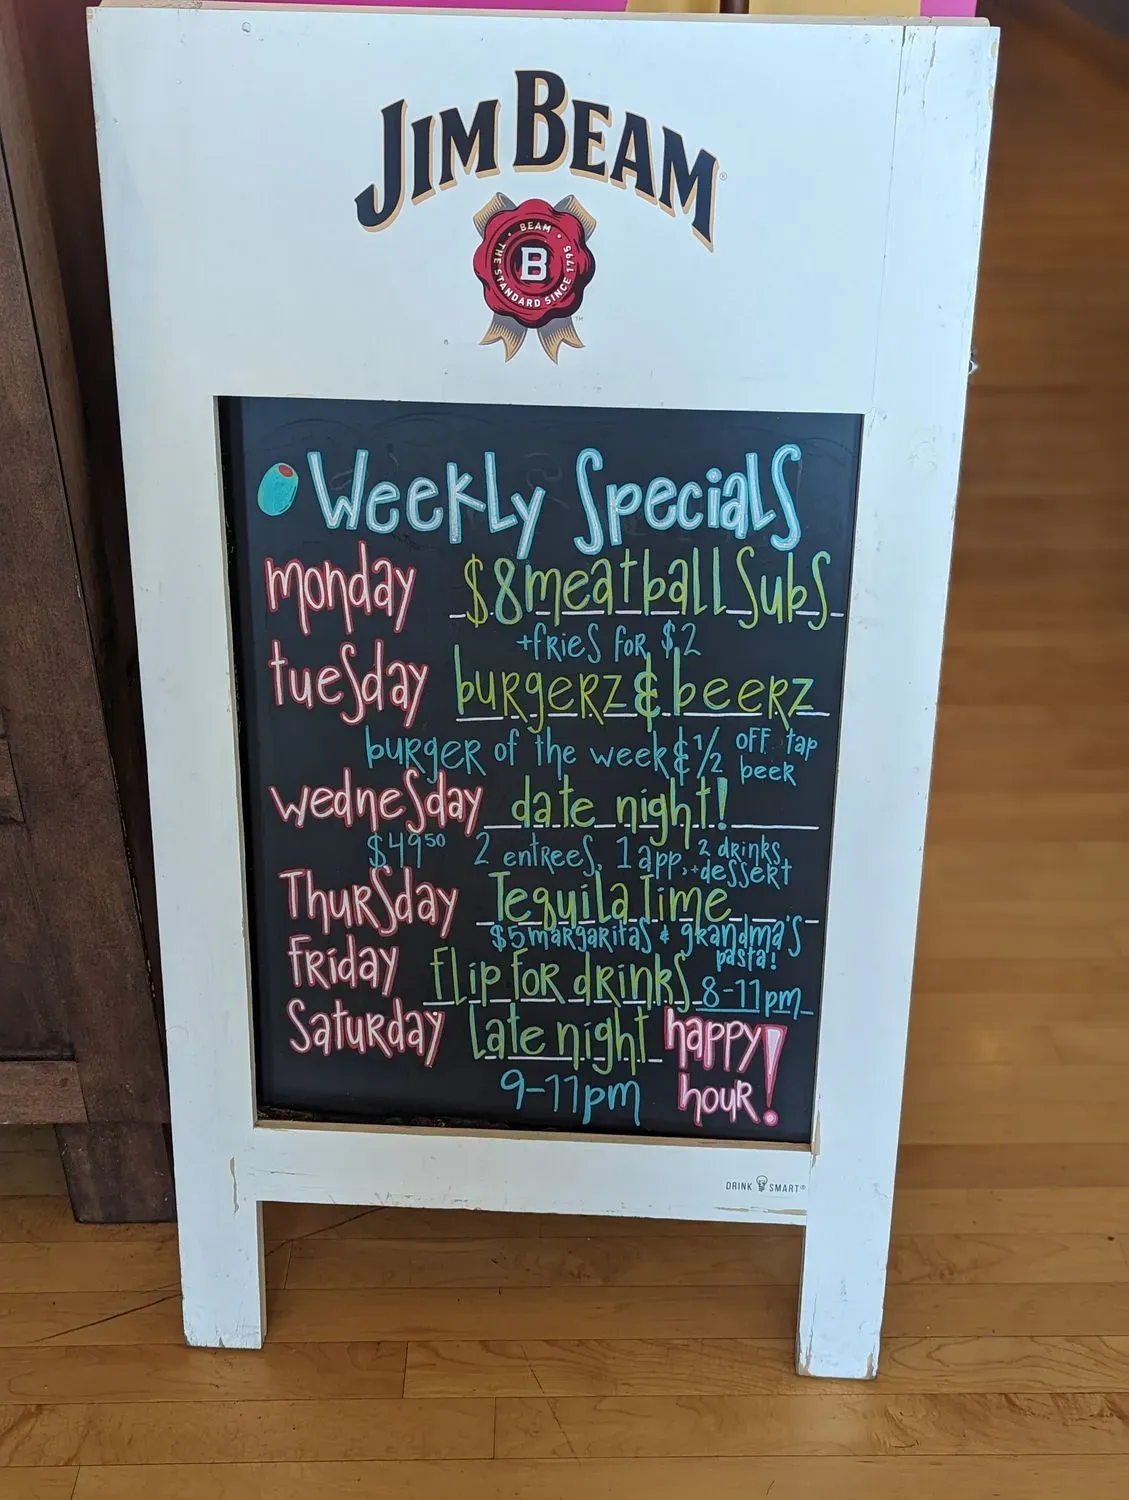 JIM BEAM®
BEAM
B
THE STANDARD SINCE 1795
Weekly Specials
monday $8 meatball subs
+fries for $2
tuesday burgerz & beerz
burger of the week & 1/2 off tap
beer
wednesday date night!
$49.50 2 entrees, 1 app, 2 drinks
+dessert
Thursday Tequila Time
$5 margaritas & grandma's
pasta!
Friday flip for drinks 8-11pm
Saturday Late night happy
9-11pm hour!
DRINK SMART®